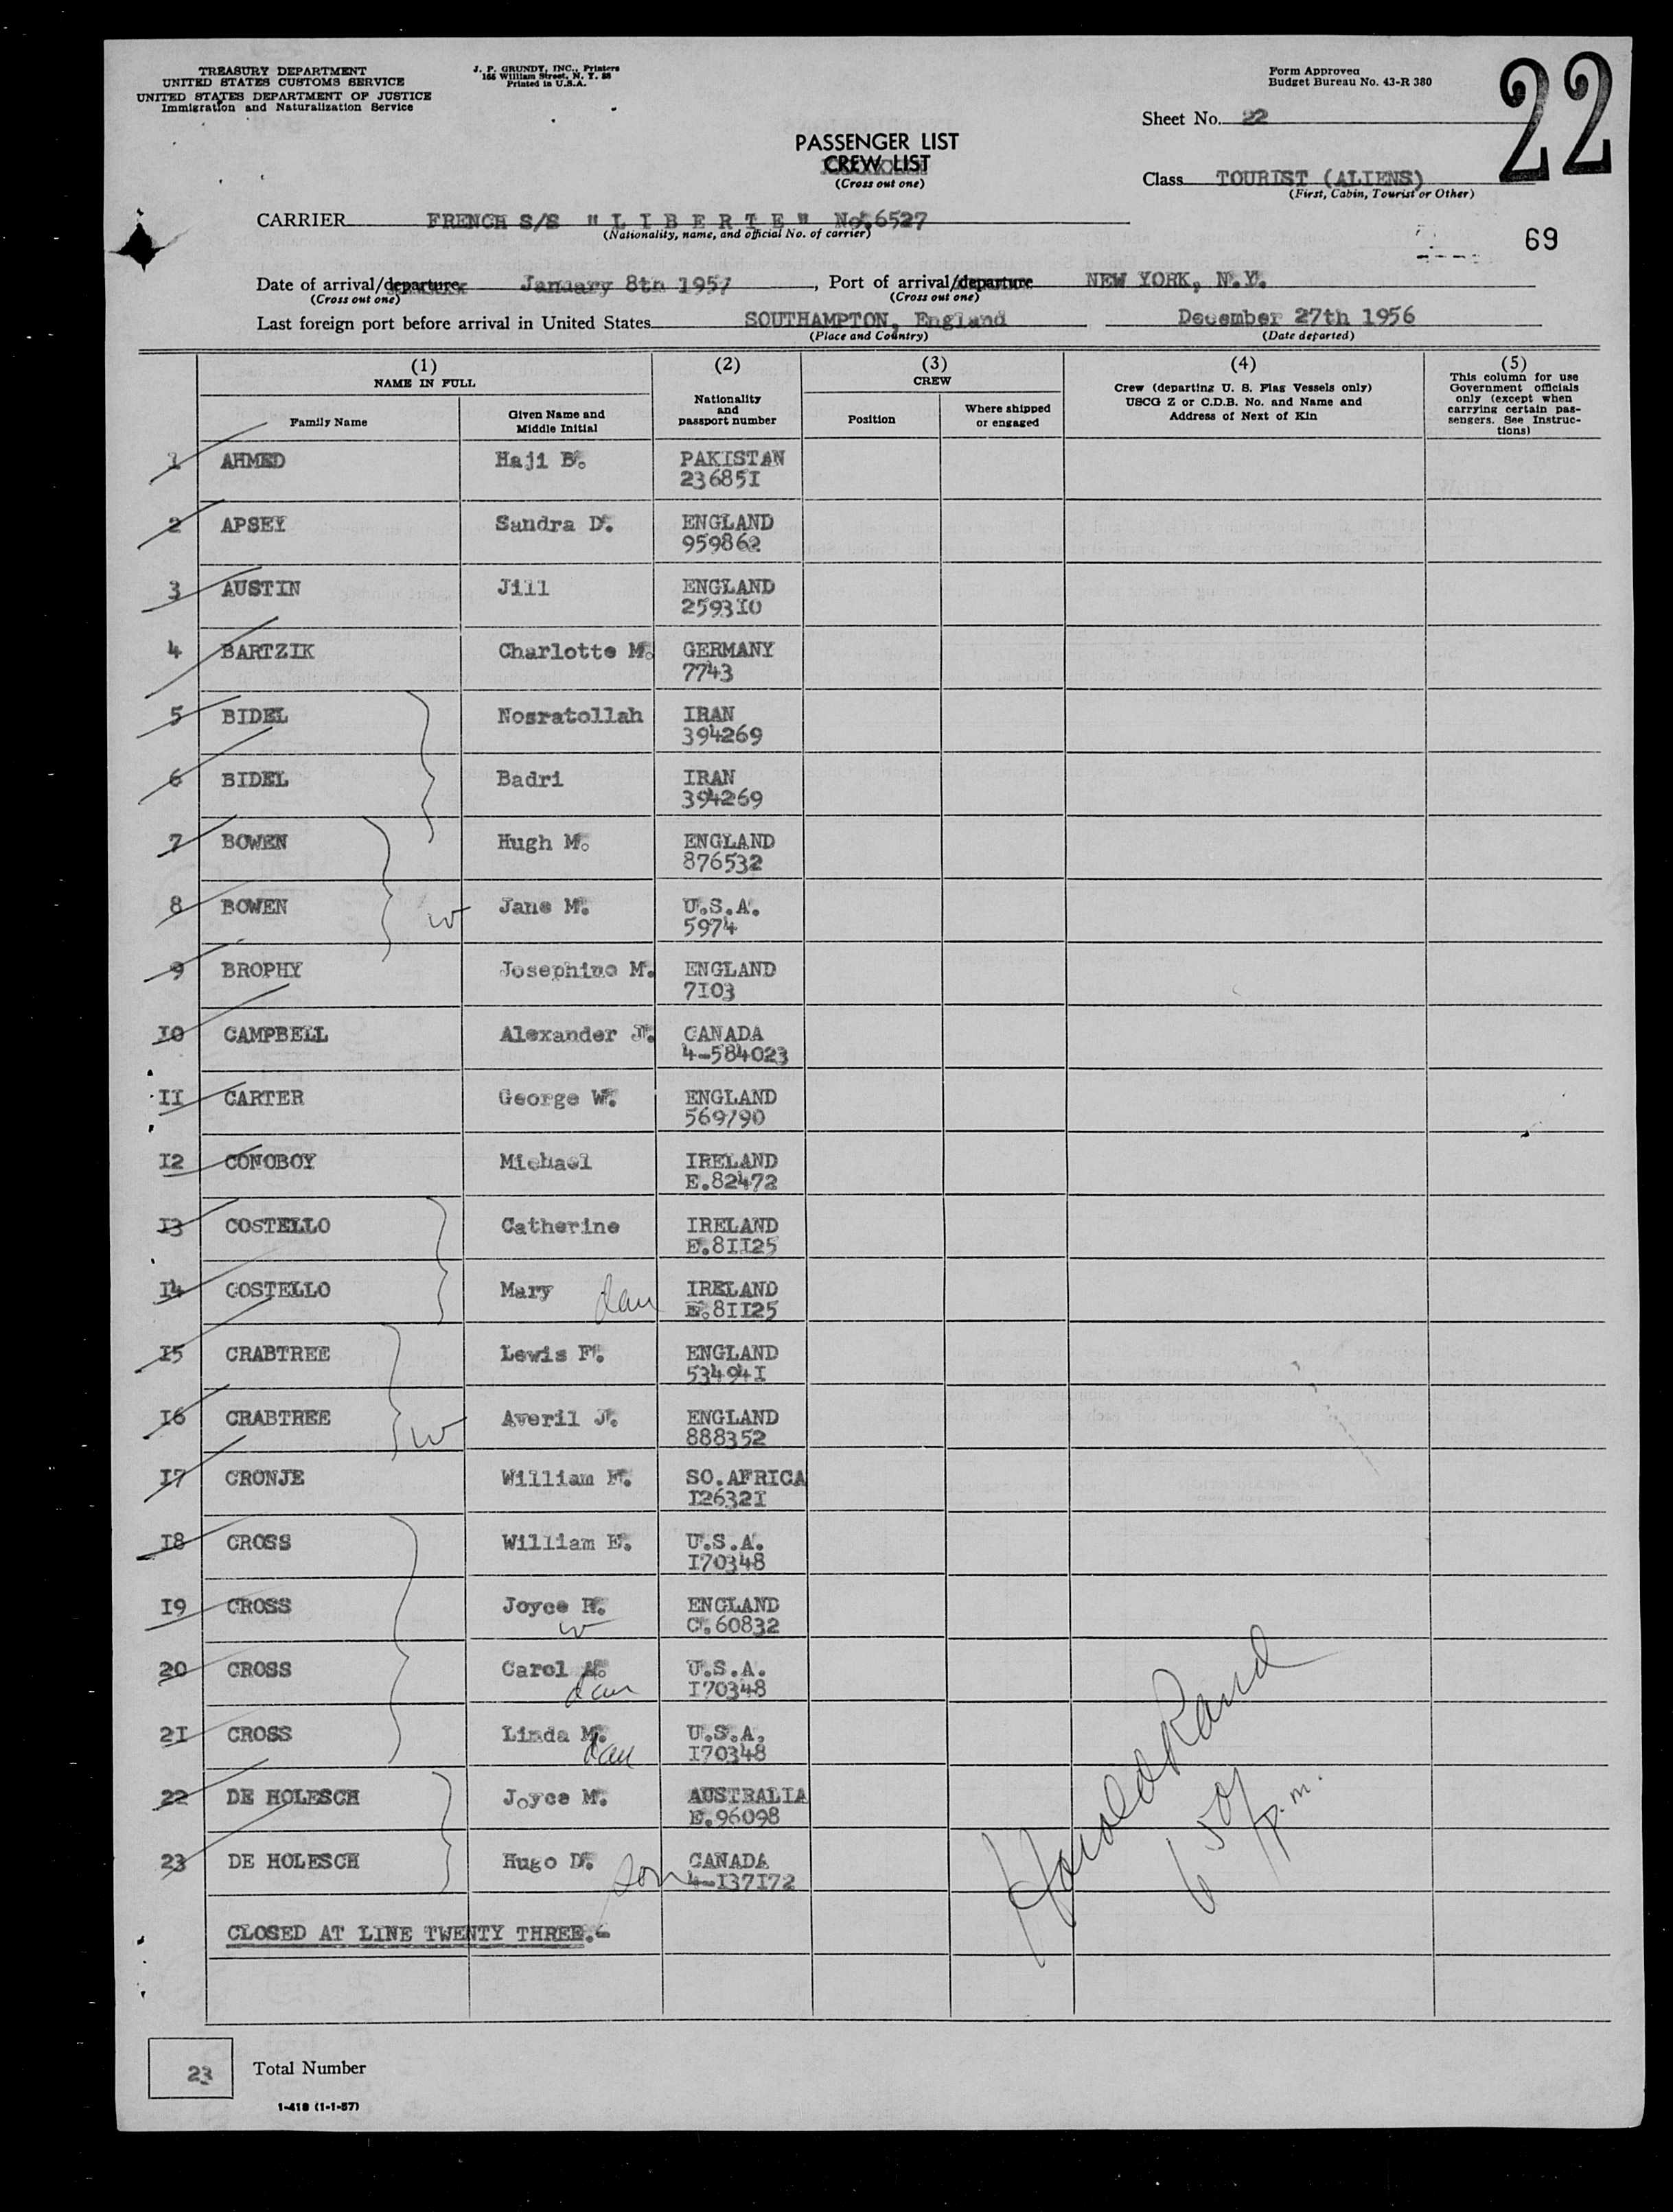 TREASURY DEPARTMENT
UNITED STATES CUSTOMS SERVICE
UNITED STATES DEPARTMENT OF JUSTICE
Immigration and Naturalization Service
J. P. GRUNDY, INC., Printers
Printed in U.S.A.
Form Approved
Budget Bureau No. 43-R 380
22
Sheet No. 22
PASSENGER LIST
CREW LIST
(Cross out one)
Class TOURIST (ALIENS)
(First, Cabin, Tourist or Other)
CARRIER FRENCH S/S "LIBERTE" No. 6527
(Nationality, name, and official No. of carrier)
69
Date of arrival/departure January 8th 1957, Port of arrival/departure NEW YORK, N.Y.
(Cross out one) (Cross out one)
Last foreign port before arrival in United States SOUTHAMPTON, England December 27th 1956
(Place and Country) (Date departed)
(1) (2) (3) (4) (5)
NAME IN FULL
Family Name
Given Name and
Middle Initial
Nationality
and
passport number
CREW
Position
Where shipped
or engaged
Crew (departing U. S. Flag Vessels only)
USCG Z or C.D.B. No. and Name and
Address of Next of Kin
This column for use
Government officials
only (except when
carrying certain pas-
sengers. See Instruc-
tions)
1 AHMED Haji B. PAKISTAN
23685I
2 APSEY Sandra D. ENGLAND
959862
3 AUSTIN Jill ENGLAND
2593I0
4 BARTZIK Charlotte M. GERMANY
7743
5 BIDEL Nosratollah IRAN
394269
6 BIDEL Badri IRAN
394269
7 BOWEN Hugh M. ENGLAND
876532
8 BOWEN w Jane M. U.S.A.
5974
9 BROPHY Josephine M. ENGLAND
7I03
I0 CAMPBELL Alexander J. CANADA
4-584023
II CARTER George W. ENGLAND
569790
I2 CONOBOY Michael IRELAND
E.82472
I3 COSTELLO Catherine IRELAND
E.8II25
I4 COSTELLO Mary dau IRELAND
E.8II25
I5 CRABTREE Lewis F. ENGLAND
53494I
I6 CRABTREE w Averil J. ENGLAND
888352
I7 CRONJE William SO.AFRICA
I2632I
I8 CROSS William E. U.S.A.
I70348
I9 CROSS Joyce R. w ENGLAND
C.60832
20 CROSS Carol A. dau U.S.A.
I70348
2I CROSS Linda M. dau U.S.A.
I70348
22 DE HOLESCH Joyce M. AUSTRALIA
E.96098
23 DE HOLESCH Hugo D. son CANADA
4-I37I72
Harold Rand
650 p.m.
CLOSED AT LINE TWENTY THREE.-
23 Total Number
I-418 (1-1-57)